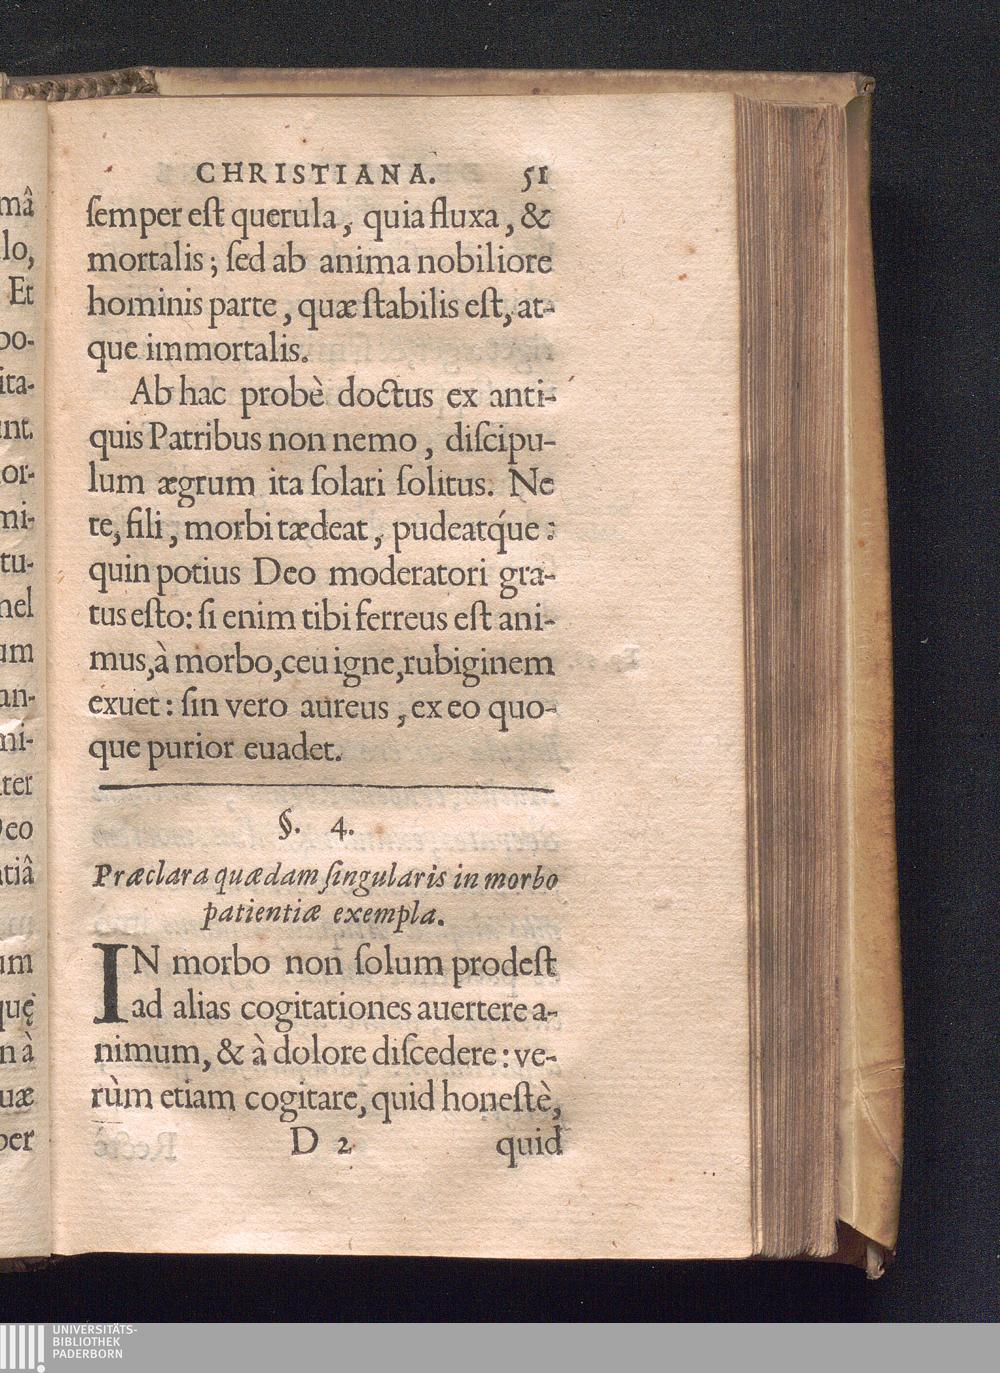 CHRISTIANA. 51
ſemper eſt querula, quia fluxa, &
mortalis; ſed ab anima nobiliore
hominis parte, quæ ſtabilis eſt, at-
que immortalis.
Ab hac probè doctus ex anti-
quis Patribus non nemo, diſcipu-
lum ægrum ita ſolari ſolitus. Ne
te, fili, morbi tædeat, pudeatq́ue:
quin potius Deo moderatori gra-
tus eſto: ſi enim tibi ferreus eſt ani-
mus, à morbo, ceu igne, rubiginem
exuet: ſin vero aureus, ex eo quo-
que purior euadet.
§. 4.
Præclara quædam ſingularis in morbo
patientiæ exempla.
IN morbo non ſolum prodeſt
ad alias cogitationes auertere a-
nimum, & à dolore diſcedere: ve-
rùm etiam cogitare, quid honeſtè,
D 2 quid
UNIVERSITÄTS-
BIBLIOTHEK
PADERBORN